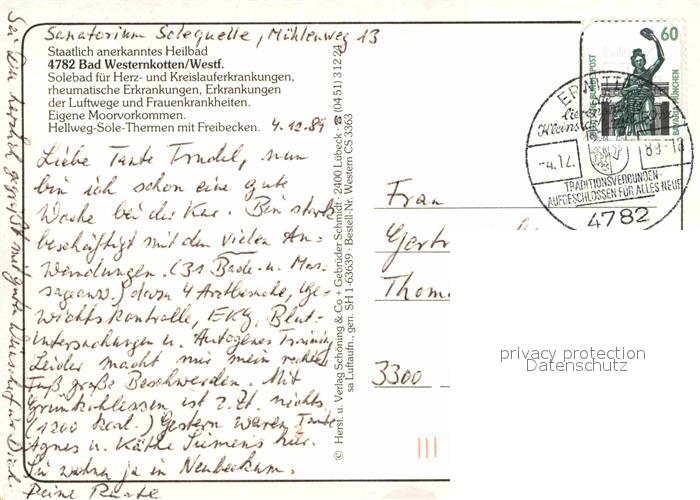 Sanatorium Solequelle, Mühlenweg 13
Staatlich anerkanntes Heilbad
4782 Bad Westernkotten/Westf.
Solebad für Herz- und Kreislauferkrankungen,
rheumatische Erkrankungen, Erkrankungen
der Luftwege und Frauenkrankheiten.
Eigene Moorvorkommen.
Hellweg-Sole-Thermen mit Freibecken. 4.12.89
Liebe Tante Trudel, nun
bin ich schon eine gute
Woche bei der Kur. Bin stark
beschäftigt mit den vielen An-
wendungen. (31 Bade- u. Mas-
sageanw.) dazu 4 Arztbesuche, Ge-
wichtskontrolle, EKG, Blut-
untersuchungen u. Autogenes Training
Leider macht mir mein rechter
Fuß große Beschwerden. Mit
Grünkohlessen ist z. Zt. nichts
(1200 kcal.) Gestern waren Tante
Agnes u. Käthe Siemens hier.
Sie wohnen ja in Neubeckum.
Deine
Sei Du herzlich gegrüßt mit guten Wünschen für Dich
© Herst. u. Verlag Schöning & Co + Gebrüder Schmidt · 2400 Lübeck · ☎ (04 51) 3 12 24
sa Luftaufn., gen. SH 1-63639 · Bestell-Nr. Western CS 3363
60
DEUTSCHE BUNDESPOST
BAVARIA MÜNCHEN
ERWITTE
-4.12.
89-18
TRADITIONSVERBUNDEN-
AUFGESCHLOSSEN FÜR ALLES NEUE
4782
Frau
Gertr
Thom
3300
privacy protection
Datenschutz